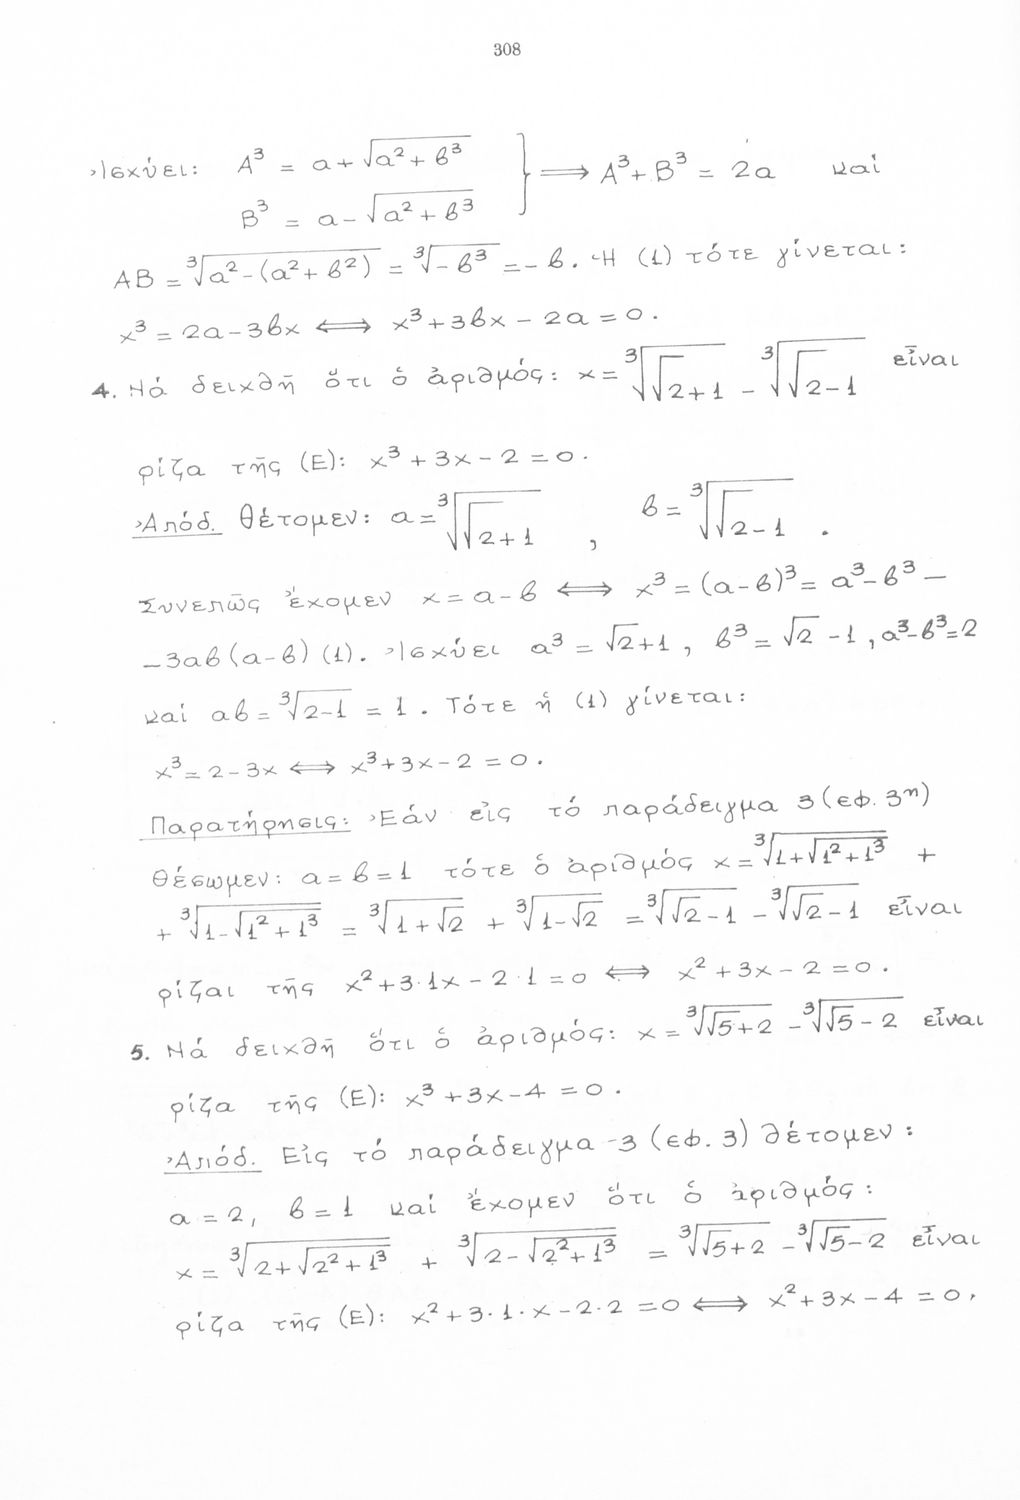 308
Ἰσχύει: A³ = a + √(a² + β³) } ⟹ A³ + B³ = 2a καί
B³ = a - √(a² + β³)
AB = ∛(a² - (a² + β²)) = ∛(-β³) = -β. Ἡ (1) τότε γίνεται:
x³ = 2a - 3βx ⟺ x³ + 3βx - 2a = 0.
4. Νά δειχθῆ ὅτι ὁ ἀριθμός: x = ∛(√2 + 1) - ∛(√2 - 1) εἶναι
ρίζα τῆς (Ε): x³ + 3x - 2 = 0.
Ἀπόδ. Θέτομεν: a = ∛(√2 + 1) , β = ∛(√2 - 1) .
Συνεπῶς ἔχομεν x = a - β ⟺ x³ = (a - β)³ = a³ - β³ -
- 3aβ(a - β) (1). Ἰσχύει a³ = √2 + 1 , β³ = √2 - 1 , a³ - β³ = 2
καί aβ = ∛(2 - 1) = 1 . Τότε ἡ (1) γίνεται:
x³ = 2 - 3x ⟺ x³ + 3x - 2 = 0 .
Παρατήρησις: Ἐάν εἰς τό παράδειγμα 3 (εφ. 3ⁿ)
θέσωμεν: a = β = 1 τότε ὁ ἀριθμός x = ∛(1 + √(1² + 1³)) +
+ ∛(1 - √(1² + 1³)) = ∛(1 + √2) + ∛(1 - √2) = ∛(√2 - 1) - ∛(√2 - 1) εἶναι
ρίζαι τῆς x² + 3·1x - 2·1 = 0 ⟺ x² + 3x - 2 = 0.
5. Νά δειχθῆ ὅτι ὁ ἀριθμός: x = ∛(√5 + 2) - ∛(√5 - 2) εἶναι
ρίζα τῆς (Ε): x³ + 3x - 4 = 0.
Ἀπόδ. Εἰς τό παράδειγμα -3 (εφ. 3) θέτομεν:
a = 2, β = 1 καί ἔχομεν ὅτι ὁ ἀριθμός:
x = ∛(2 + √(2² + 1³)) + ∛(2 - √(2² + 1³)) = ∛(√5 + 2) - ∛(√5 - 2) εἶναι
ρίζα τῆς (Ε): x² + 3·1·x - 2·2 = 0 ⟺ x² + 3x - 4 = 0.